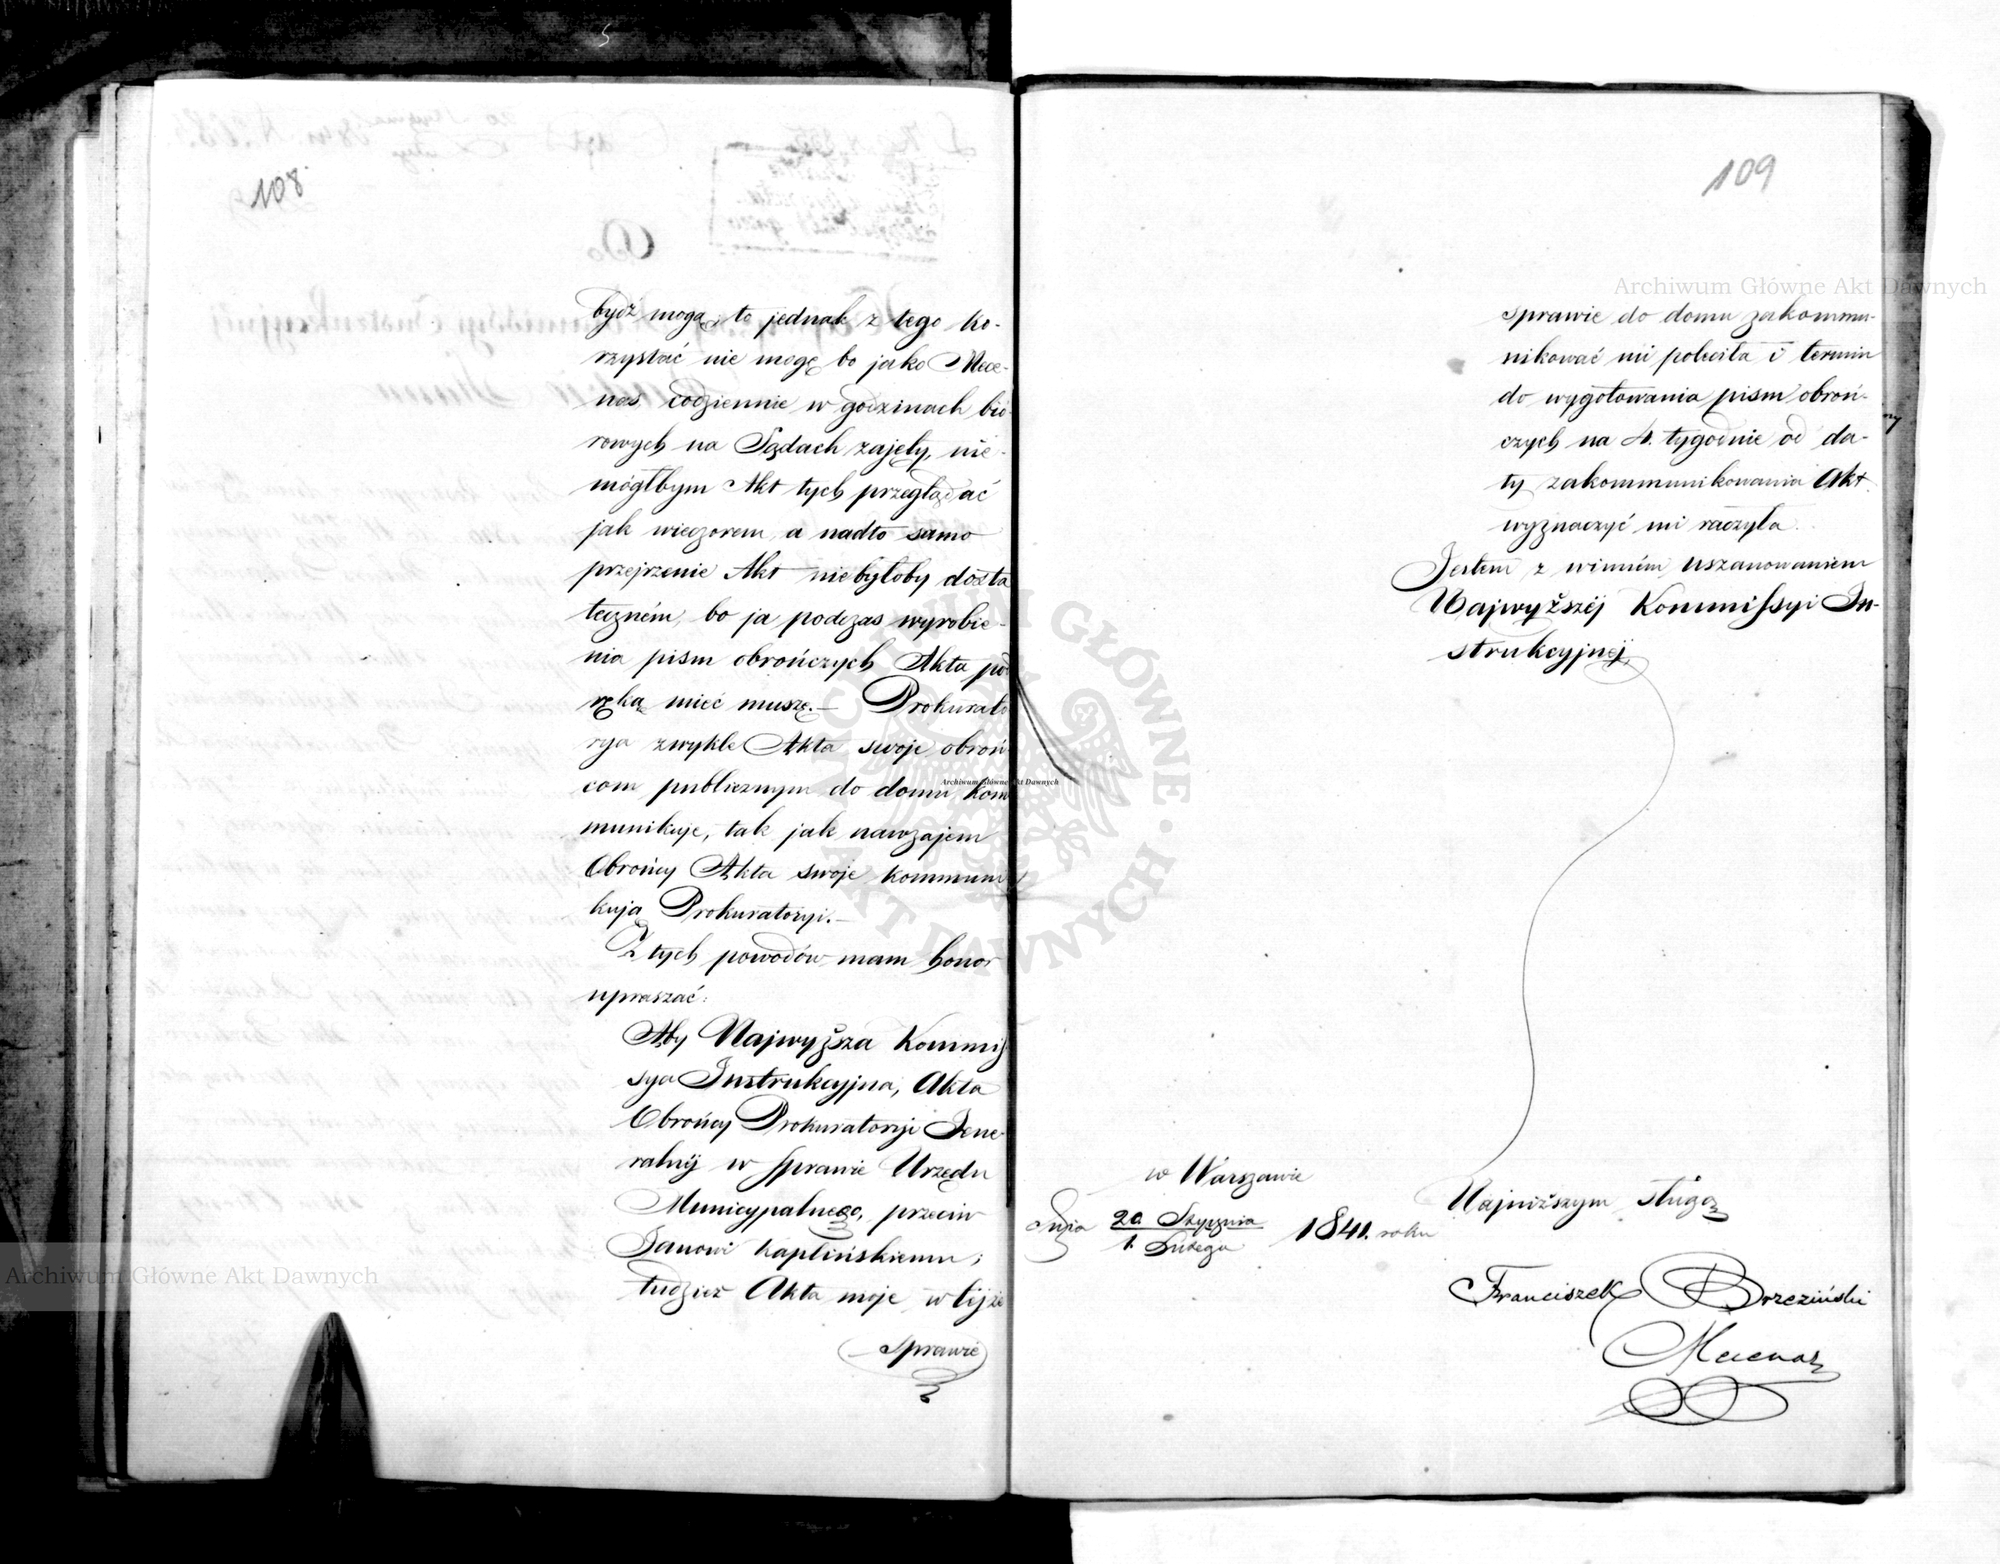 108
bydź mogą; to jednak z tego ko-
rzystać nie mogę bo jako Mece-
nas codziennie w godzinach bió-
rowych na Sądach zajęty, nie-
mógłbym Akt tych przeglądać
jak wieczorem, a nadto samo
przejrzenie Akt niebyłoby dosta
teczném, bo ja podczas wyrobie-
nia pism obrończych Akta pod
ręką mieć muszę.— Prokurato
rya zwykle Akta swoje obroń-
com publicznym do domu kom
munikuje, tak jak nawzajem
Obrońcy Akta swoje kommuni
kują Prokuratoryi.—
Z tych powodów mam honor
upraszać:
Aby Najwyższa Kommis
sya Instrukcyjna, Akta
Obrońcy Prokuratoryi Jene-
ralnéj w sprawie Urzędu
Municypalnego, przeciw
Janowi Kaplińskiemu;
tudzież Akta moje w téjże
sprawie
109
sprawie do domu zakommu-
nikować mi poleciła i termin
do wygotowania pism obroń-
czych na 4. tygodnie od da-
ty zakommunikowania Akt
wyznaczyć mi raczyła.
Jestem z winném uszanowaniem
Najwyższéj Kommissyi In-
strukcyjnéj
w Warszawie
dnia 20. Stycznia 1841. roku
1. Lutego
Najniższym sługą
Franciszek Brzeziński
Mecenas
Archiwum Główne Akt Dawnych
Archiwum Główne Akt Dawnych
Archiwum Główne Akt Dawnych
ARCHIWUM GŁÓWNE AKT DAWNYCH